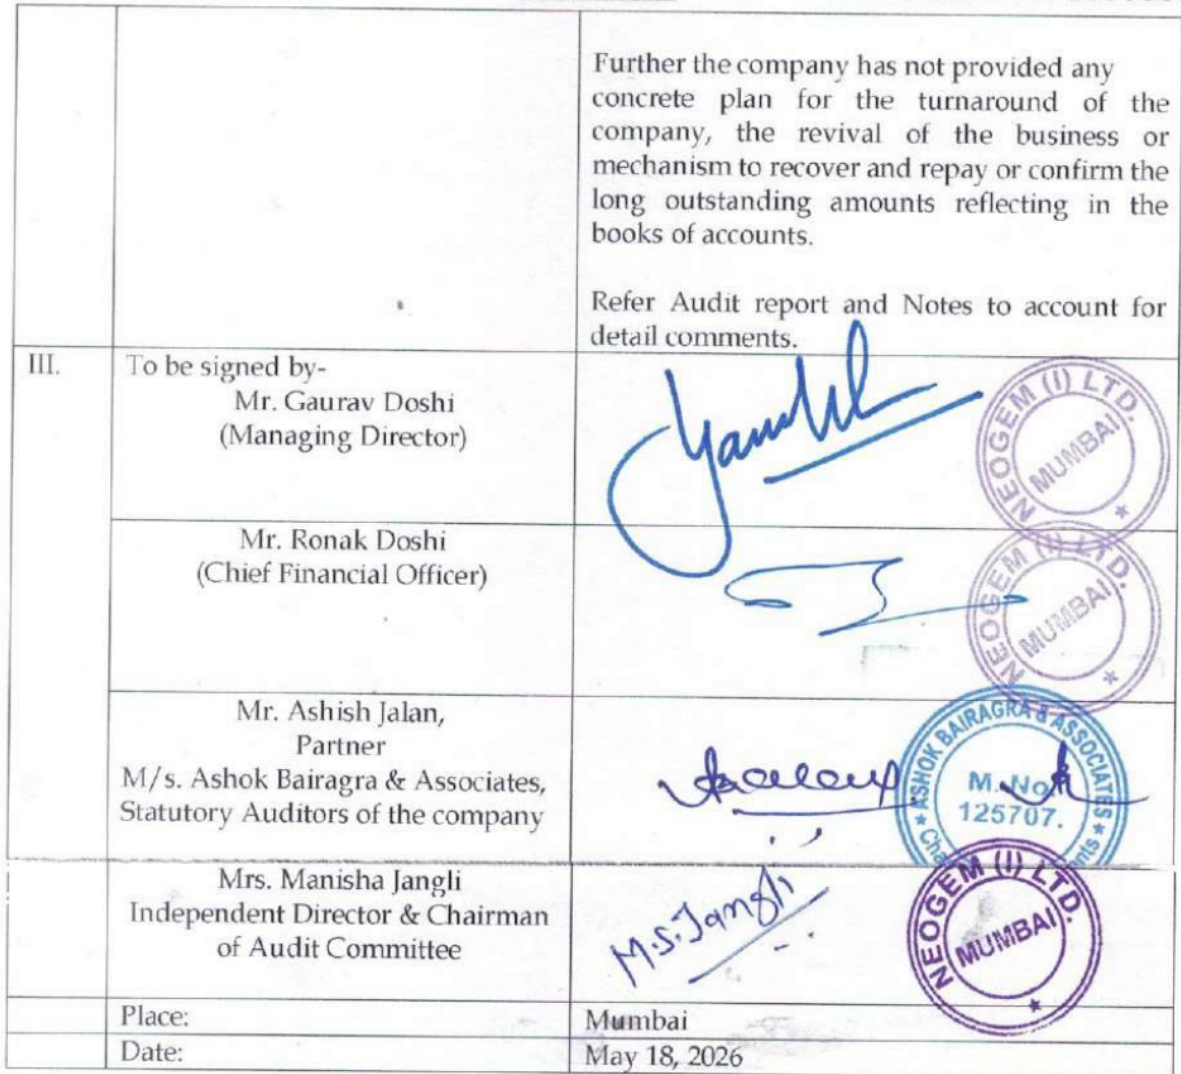 Further the company has not provided any
concrete plan for the turnaround of the
company, the revival of the business or
mechanism to recover and repay or confirm the
long outstanding amounts reflecting in the
books of accounts.
Refer Audit report and Notes to account for
detail comments.
III.
To be signed by-
Mr. Gaurav Doshi
(Managing Director)
NEOGEM (I) LTD.
MUMBAI
Mr. Ronak Doshi
(Chief Financial Officer)
NEOGEM (I) LTD.
MUMBAI
Mr. Ashish Jalan,
Partner
M/s. Ashok Bairagra & Associates,
Statutory Auditors of the company
ASHOK BAIRAGRA & ASSOCIATES
M. No.
125707.
Mrs. Manisha Jangli
Independent Director & Chairman
of Audit Committee
M.S. Jangli
NEOGEM (I) LTD.
MUMBAI
Place:
Mumbai
Date:
May 18, 2026